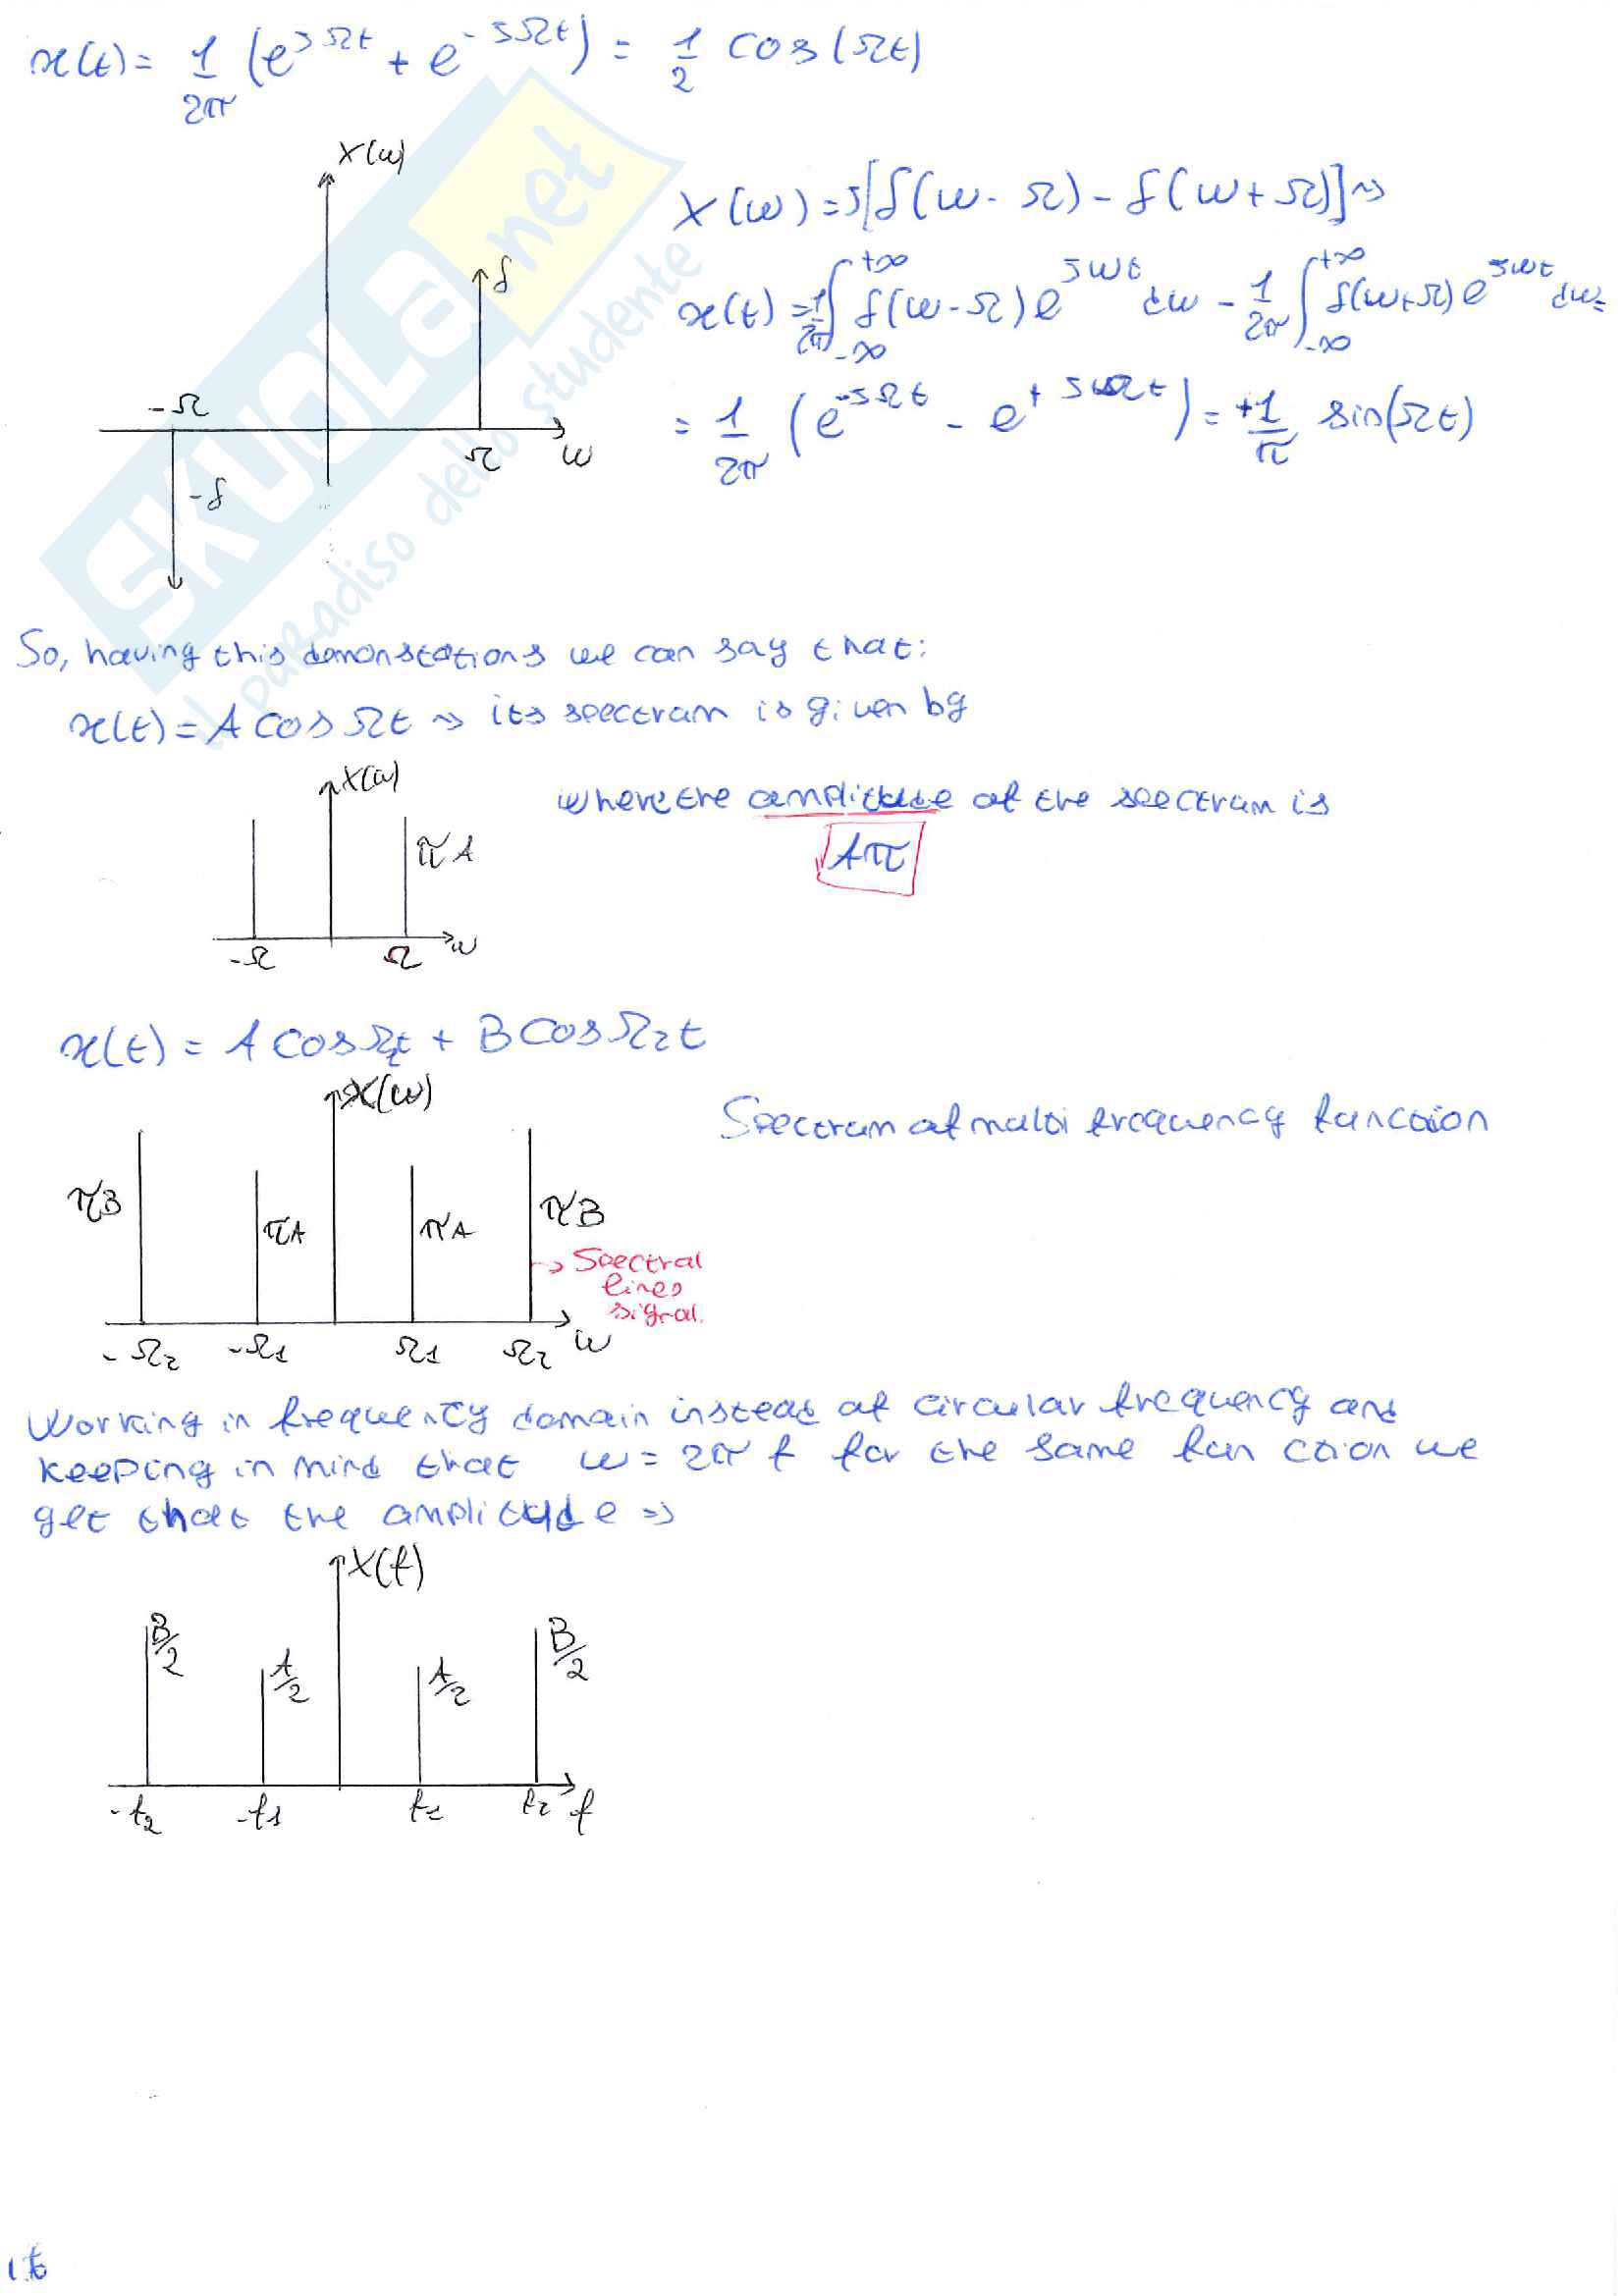 x(t) = 1/2π (e^jΩt + e^-jΩt) = 1/2 cos(Ωt)
X(ω)
δ
-Ω
Ω
ω
-δ
X(ω) = j[δ(ω - Ω) - δ(ω + Ω)] ⇝
x(t) = 1/2π ∫_-∞^+∞ δ(ω - Ω) e^jωt dω - 1/2π ∫_-∞^+∞ δ(ω+Ω) e^jωt dω =
= 1/2π (e^-jΩt - e^+jΩt) = +1/π sin(Ωt)
SKUOLA.net
il paradiso dello studente
So, having this demonstations we can say that:
x(t) = A cos Ωt ⇝ its spectrum is given by
X(ω)
πA
-Ω
Ω
ω
where the amplitude of the spectrum is
Aπ
x(t) = A cos Ω1t + B cos Ω2t
X(ω)
πB
πA
πA
πB
-Ω2
-Ω1
Ω1
Ω2
ω
→ Spectral
lines
signal.
Spectrum of multi frequency function
Working in frequency domain instead of circular frequency and
keeping in mind that ω = 2π f for the same function we
get that the amplitude ⇒
X(f)
B/2
A/2
A/2
B/2
-f2
-f1
f1
f2
f